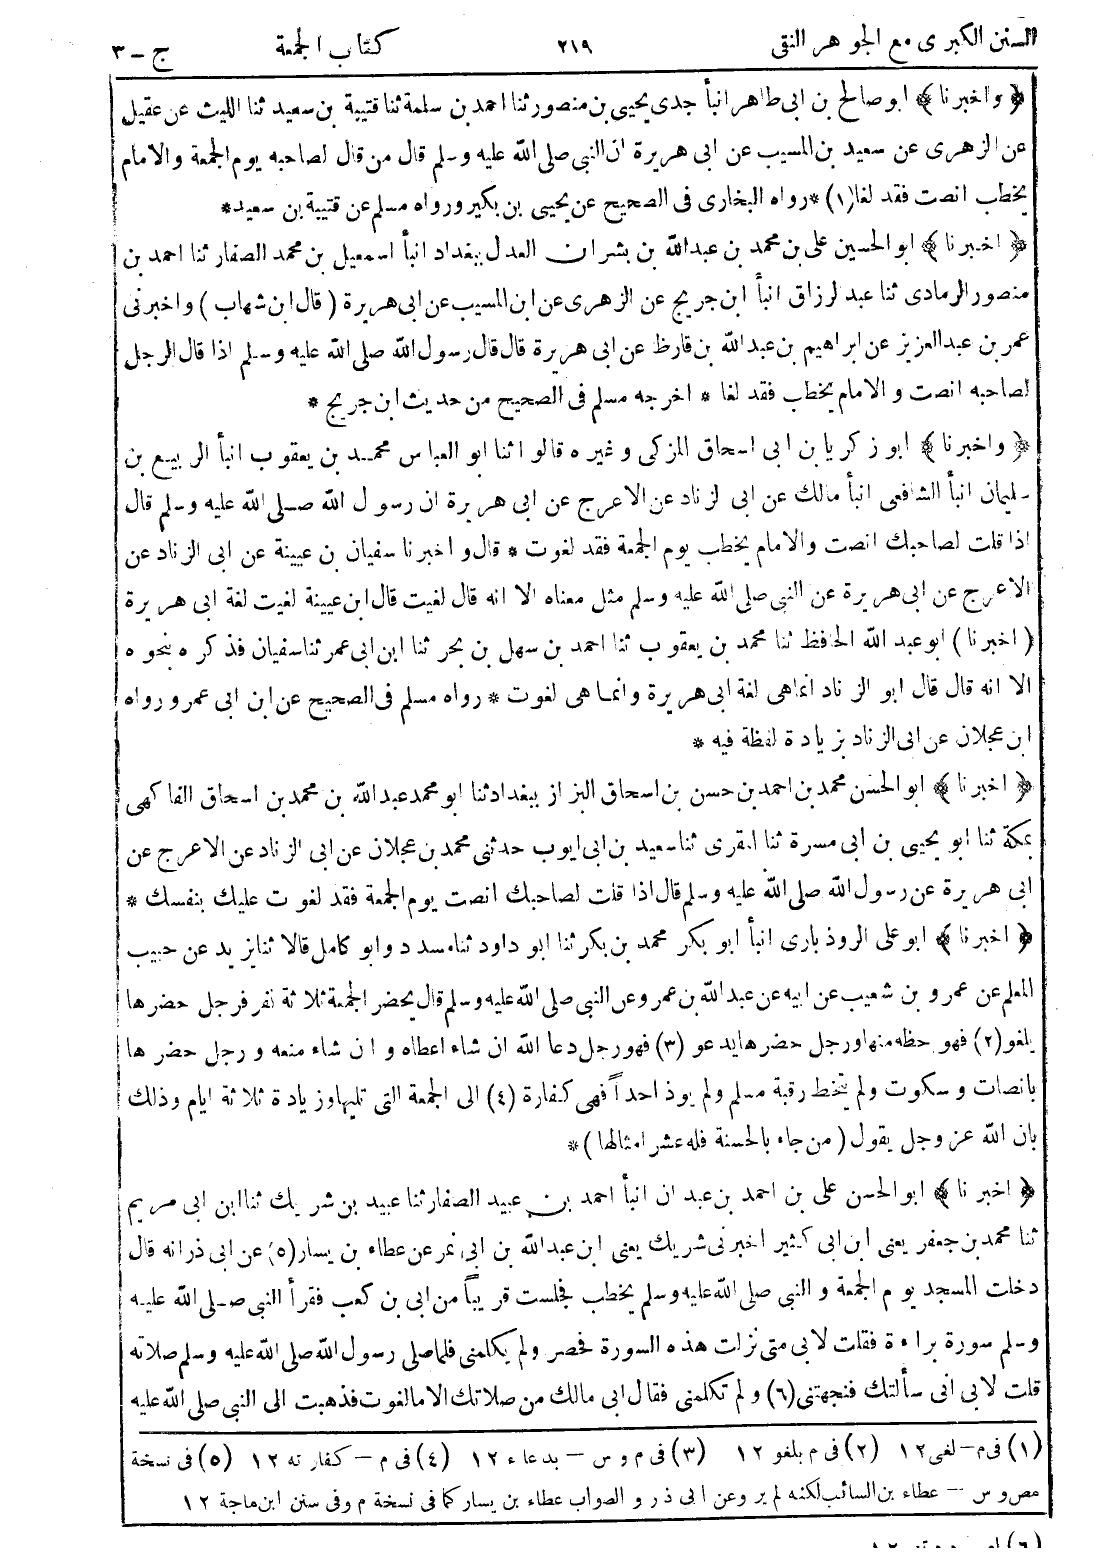 السنن الكبرى مع الجوهر النقى ٢١٩ كتاب الجمعة ج - ٣
﴿ واخبرنا ﴾ ابو صالح بن ابى طاهر انبأ جدى يحيى بن منصور ثنا احمد بن سلمة ثنا قتيبة بن سعيد ثنا الليث عن عقيل
عن الزهرى عن سعيد بن المسيب عن ابى هريرة ان النبى صلى الله عليه وسلم قال من قال لصاحبه يوم الجمعة والامام
يخطب انصت فقد لغا(١) * رواه البخارى فى الصحيح عن يحيى بن بكير ورواه مسلم عن قتيبة بن سعيد*
﴿ اخبرنا ﴾ ابو الحسين على بن محمد بن عبدالله بن بشران العدل ببغداد انبأ اسمعيل بن محمد الصفار ثنا احمد بن
منصور الرمادى ثنا عبد الرزاق انبأ ابن جريج عن الزهرى عن ابن المسيب عن ابى هريرة ( قال ابن شهاب ) واخبرنى
عمر بن عبدالعزيز عن ابراهيم بن عبدالله بن قارظ عن ابى هريرة قال قال رسول الله صلى الله عليه وسلم اذا قال الرجل
لصاحبه انصت و الامام يخطب فقد لغا * اخرجه مسلم فى الصحيح من حديث ابن جريج *
﴿ واخبرنا ﴾ ابو زكريا بن ابى اسحاق المزكى وغيره قالوا ثنا ابو العباس محمد بن يعقوب انبأ الربيع بن
سليمان انبأ الشافعى انبأ مالك عن ابى الزناد عن الاعرج عن ابى هريرة ان رسول الله صلى الله عليه وسلم قال
اذا قلت لصاحبك انصت والامام يخطب يوم الجمعة فقد لغوت * قال و اخبرنا سفيان بن عيينة عن ابى الزناد عن
الاعرج عن ابى هريرة عن النبى صلى الله عليه وسلم مثل معناه الا انه قال لغيت قال ابن عيينة لغيت لغة ابى هريرة
( اخبرنا ) ابو عبد الله الحافظ ثنا محمد بن يعقوب ثنا احمد بن سهل بن بحر ثنا ابن ابى عمر ثنا سفيان فذكره بنحوه
الا انه قال قال ابو الزناد انماهى لغة ابى هريرة وانما هى لغوت * رواه مسلم فى الصحيح عن ابن ابى عمر و رواه
ابن عجلان عن ابى الزناد بزيادة لفظة فيه *
﴿ اخبرنا ﴾ ابو الحسن محمد بن احمد بن حسن بن اسحاق البزاز ببغداد ثنا ابو محمد عبدالله بن محمد بن اسحاق الفاكهى
بمكة ثنا ابو يحيى بن ابى مسرة ثنا المقرى ثنا سعيد بن ابى ايوب حدثنى محمد بن عجلان عن ابى الزناد عن الاعرج عن
ابى هريرة عن رسول الله صلى الله عليه وسلم قال اذا قلت لصاحبك انصت يوم الجمعة فقد لغوت عليك بنفسك *
﴿ اخبرنا ﴾ ابو على الروذبارى انبأ ابو بكر محمد بن بكر ثنا ابو داود ثنا مسدد وابو كامل قالا ثنا يزيد عن حبيب
المعلم عن عمرو بن شعيب عن ابيه عن عبدالله بن عمرو عن النبى صلى الله عليه وسلم قال يحضر الجمعة ثلاثة نفر فرجل حضرها
يلغو(٢) فهو حظه منها ورجل حضرها يدعو (٣) فهو رجل دعا الله ان شاء اعطاه و ان شاء منعه و رجل حضرها
بانصات و سكوت ولم يتخط رقبة مسلم ولم يوذ احداً فهى كفارة (٤) الى الجمعة التى تليها وزيادة ثلاثة ايام وذلك
بان الله عز وجل يقول ( من جاء بالحسنة فله عشر امثالها ) *
﴿ اخبرنا ﴾ ابو الحسن على بن احمد بن عبدان انبأ احمد بن عبيد الصفار ثنا عبيد بن شريك ثنا ابن ابى مريم
ثنا محمد بن جعفر يعنى ابن ابى كثير اخبرنى شريك يعنى ابن عبدالله بن ابى نمر عن عطاء بن يسار(٥) عن ابى ذر انه قال
دخلت المسجد يوم الجمعة و النبى صلى الله عليه وسلم يخطب فجلست قريباً من ابى بن كعب فقرأ النبى صلى الله عليه
وسلم سورة براءة فقلت لابى متى نزلت هذه السورة فحصر ولم يكلمنى فلما صلى رسول الله صلى الله عليه وسلم صلاته
قلت لابى انى سألتك فنجهتنى (٦) و لم تكلمنى فقال ابى مالك من صلاتك الا مالغوت فذهبت الى النبى صلى الله عليه
(١) فى م - لغى ١٢ (٢) فى م بلغو ١٢ (٣) فى م و س - بدعاء ١٢ (٤) فى م - كفارته ١٢ (٥) فى نسخة
مص و س - عطاء بن السائب لكنه لم يرو عن ابى ذر و الصواب عطاء بن يسار كما فى نسخة م وفى سنن ابن ماجة ١٢